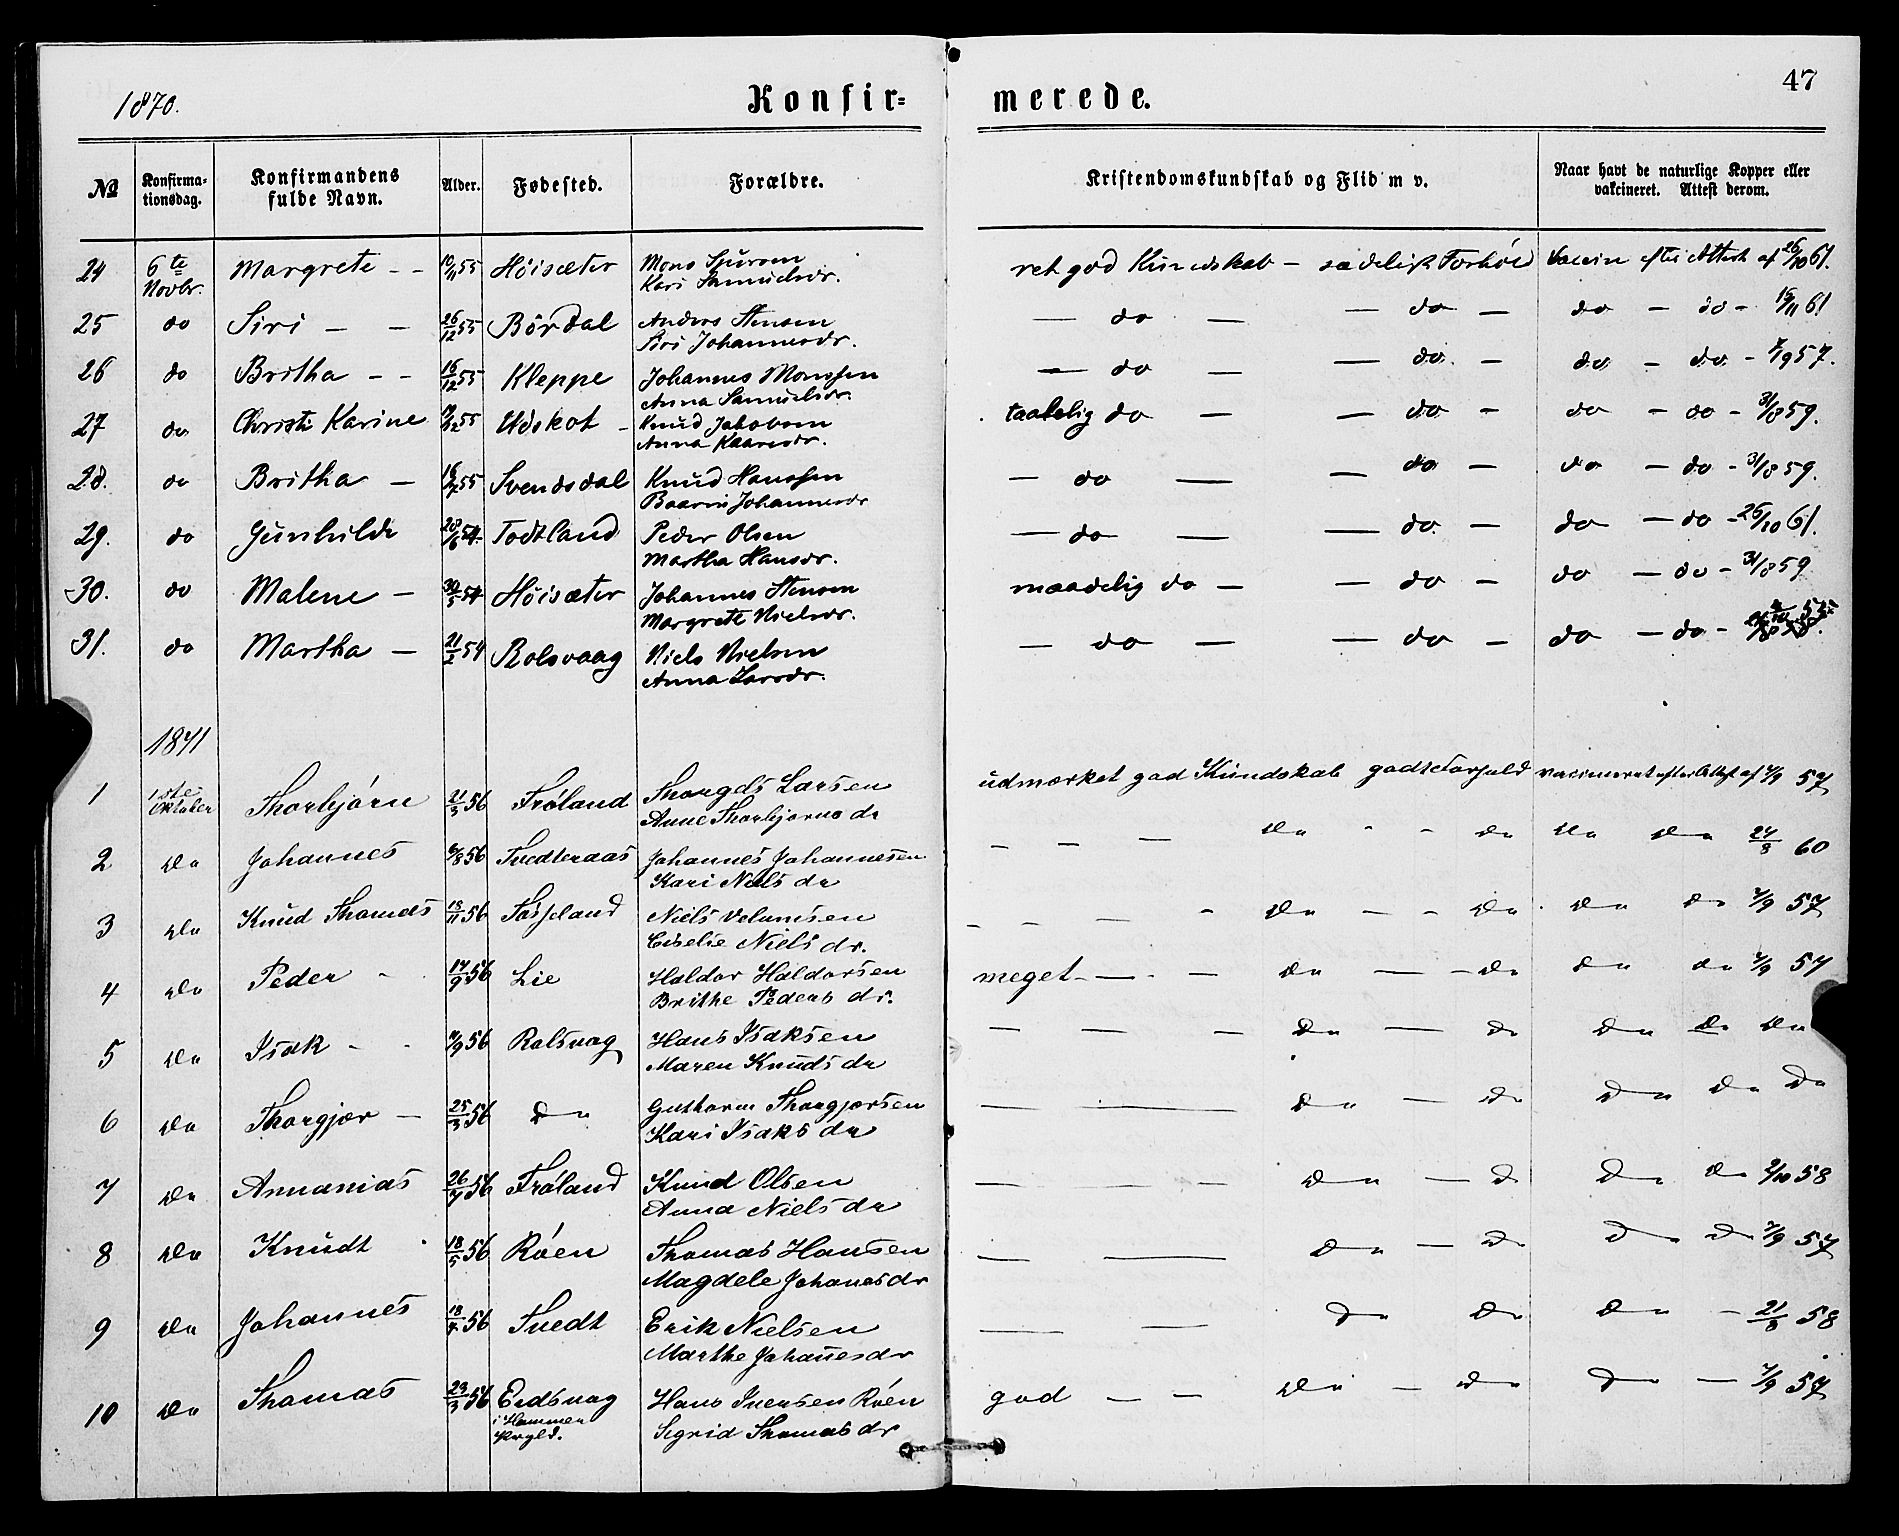 1870. Konfir= merede. 47
№ Konfirma-tionsdag. Konfirmandens fulde Navn. Alder. Fødested. Forældre. Kristendomskundskab og Flid m v. Naar havt de naturlige Kopper eller vakcineret. Attest derom.
24 6te Novbr. Margrete - - 10/11 55 Höisæter Mons Kari Samuelsdr. ret god Kundskab - sædelig Forhold Vaccin efter Attest af 26/10 61.
25 do Siri - - 26/12 55 Bördal Anders Stensen Siri Johannesdr. - do - - do - do - do - 15/11 61
26 do Britha - - 16/12 55 Kleppe Johannes Monssen Anna Samuelsdr. - do - - do. - do - do - 7/9 57.
27 do Christi Karine 55 Udskot - Knud Jakobsen Anna Kaaresdr. taalelig do - - do - do - do - 31/8 59.
28. do Britha - 55 Svendsdal Knud Hanssen Baarni Johannesdr - do - - do - do - do - 31/8 59.
29. do Gunhilde 28/6 54. Todtland Peder Olsen Martha Hansdr. - do - - do - do - do - 26/10 61.
30. do Malene - 30/5 54 Höisæter Johannes Stensen Margrete Nielsdr. maadelig do - - do - do - do - 31/8 59
31. do Martha - 21/2 54 Rolsvaag Niels Nielsen Anna Larsdr. - do - - do - do - do -
1871
1 1ste Oktober Thorbjörn 21/3 56 Fröland Larsen Anne Thorbjörns dr udmærket god Kundskab godt Forhold vaccineret efter Attest af 7/9 57
2 do Johannes 6/8 56 Tvedteraas Johannes Johannesen Kari Niels dr - - - do - - do do do 24/8 60
3 do Knud Thomas 18/11 56 Niels Velomsen Ciselie Niels dr. - - - do - - do do do 7/9 57
4 do Peder - 14/9 56 Lie Haldor Haldorsen Brithe Peders dr. meget - - - do - - do do do 7/9 57
5 do Isak - - 7/9 56 Rolsvag Hans Isaksen Maren Knuds dr - - - do - do do do do
6 do Thorgjer - 25/3 56 do Guthorm Thorgjersen Kari Isaks dr - - do - do do do do
7 do Annanias 26/7 56 Fröland Knud Olsen Anna Niels dr - - - do - do do do 2/10 58
8 do Knudt 18/5 56 Röen Thomas Hansen Magdele Johanesdr - - do - do do do 7/9 57
9 do Johannes 18/7 56 Tvedt Erik Nielsen Marthe Johanesdr - - do do do - 21/8 58
10 do Thomas 29/3 56 Eidsvag i Hammer Prgld. Hans Iversen Röen Sigrid Thomas dr god - - do - do do - 7/9 57